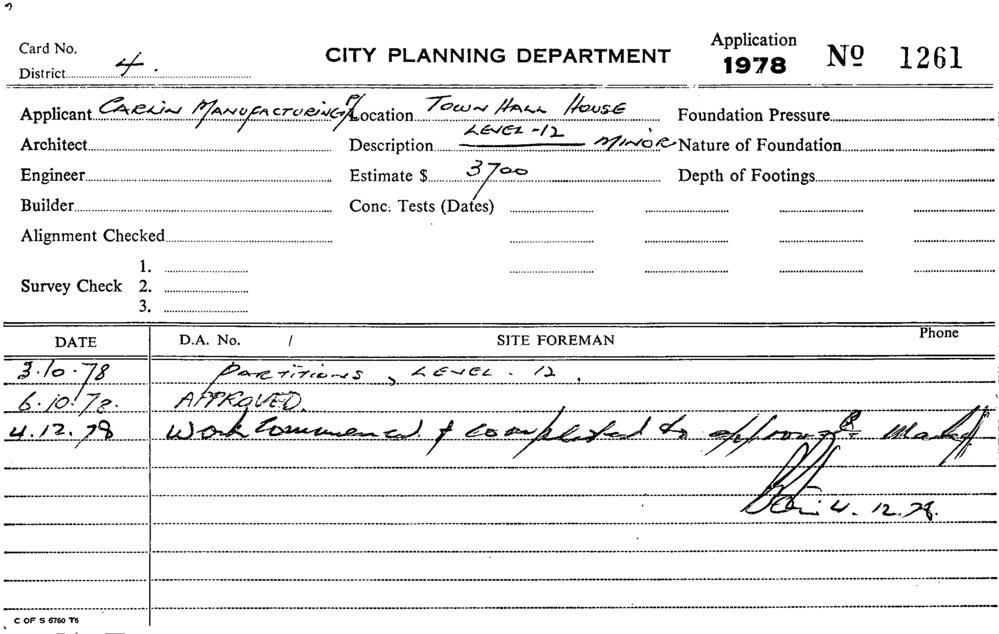 Card No.
CITY PLANNING DEPARTMENT
Application
1978
Nº 1261
District 4.
Applicant CARLIN MANUFACTURING P/L
Location TOWN HALL HOUSE
Foundation Pressure
LEVEL-12
Architect
Description MINOR
Nature of Foundation
Engineer
Estimate $ 3700
Depth of Footings
Builder
Conc. Tests (Dates)
Alignment Checked
Survey Check 1.
2.
3.
DATE D.A. No. / SITE FOREMAN Phone
3.10.78 PARTITIONS, LEVEL-12.
6.10.78. APPROVED.
4.12.78 Work Commenced & completed to approved
4.12.78.
C OF S 6760 T6